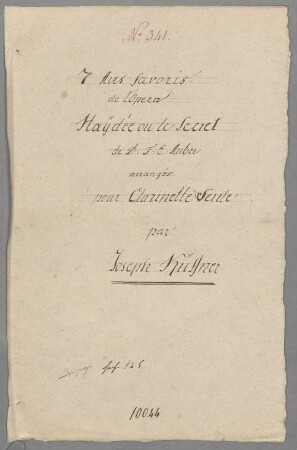 No. 341.
7 Airs favoris
de l'Opera
Haÿdée ou le Secret
de D. F. E. Auber
arrangés
pour Clarinette Seule
par
Joseph Küffner
125
10044